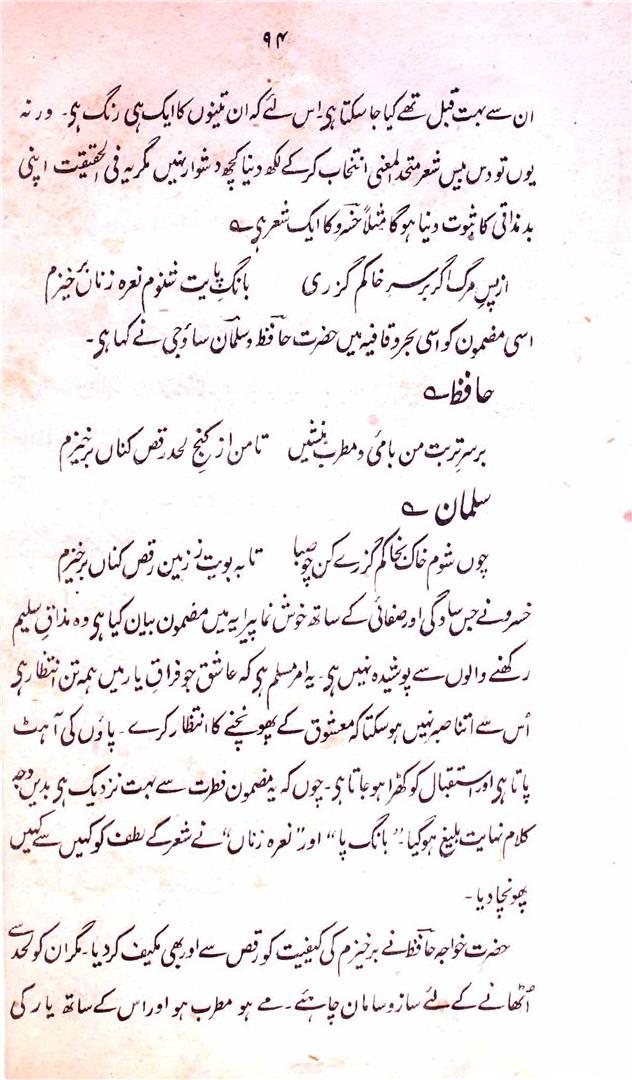 ۹۴
ان سے بہت قبل تھے کیا جا سکتا ہی۔ اس لئے کہ ان تینوں کا ایک ہی رنگ ہی۔ ورنہ
یوں تو دس بیس شعر متحد المعنی انتخاب کر کے لکھ دنیا کچھ دشوار نہیں مگر یہ فی الحقیقت اپنی
بد مذاقی کا ثبوت دنیا ہوگا مثلاً خسرو کا ایک شعر ہی ؎
از پسِ مرگ اگر بر سرِ خاکم گزری بانگِ پایت شنوم نعرہ زناں برخیزم
اسی مضمون کو اسی بحر و قافیہ میں حضرت حافظ و سلمان ساؤجی نے کہا ہی۔
حافظ ؎
بر سرِ تربت من بامی و مطرب بنشیں تا من از کنج لحد رقص کناں برخیزم
سلمان ؎
چوں شوم خاک بخاکم گزرے کن چو صبا تا بہ بویت ز زمین رقص کناں برخیزم
خسرو نے جس سادگی اور صفائی کے ساتھ خوش نما پیرایہ میں مضمون بیان کیا ہی وہ مذاقِ سلیم
رکھنے والوں سے پوشیدہ نہیں ہی۔ یہ امر مسلم ہی کہ عاشق جو فراقِ یار میں ہمہ تن انتظار ہی
اُس سے اتنا صبر نہیں ہو سکتا کہ معشوق کے پھونچنے کا انتظار کرے۔ پاؤں کی آہٹ
پاتا ہی اور استقبال کو کھڑا ہو جاتا ہی۔ چوں کہ یہ مضمون فطرت سے بہت نزدیک ہی بدیں وجہ
کلام نہایت بلیغ ہو گیا۔ ”بانگ پا“ اور ”نعرہ زناں“ نے شعر کے لطف کو کہیں سے کہیں
پھونچا دیا۔
حضرت خواجہ حافظ نے برخیزم کی کیفیت کو رقص سے اور بھی مکیف کر دیا۔ مگر ان کو لحد سے
اُٹھانے کے لئے ساز و سامان چاہئے۔ مے ہو مطرب ہو اور اس کے ساتھ یار کی